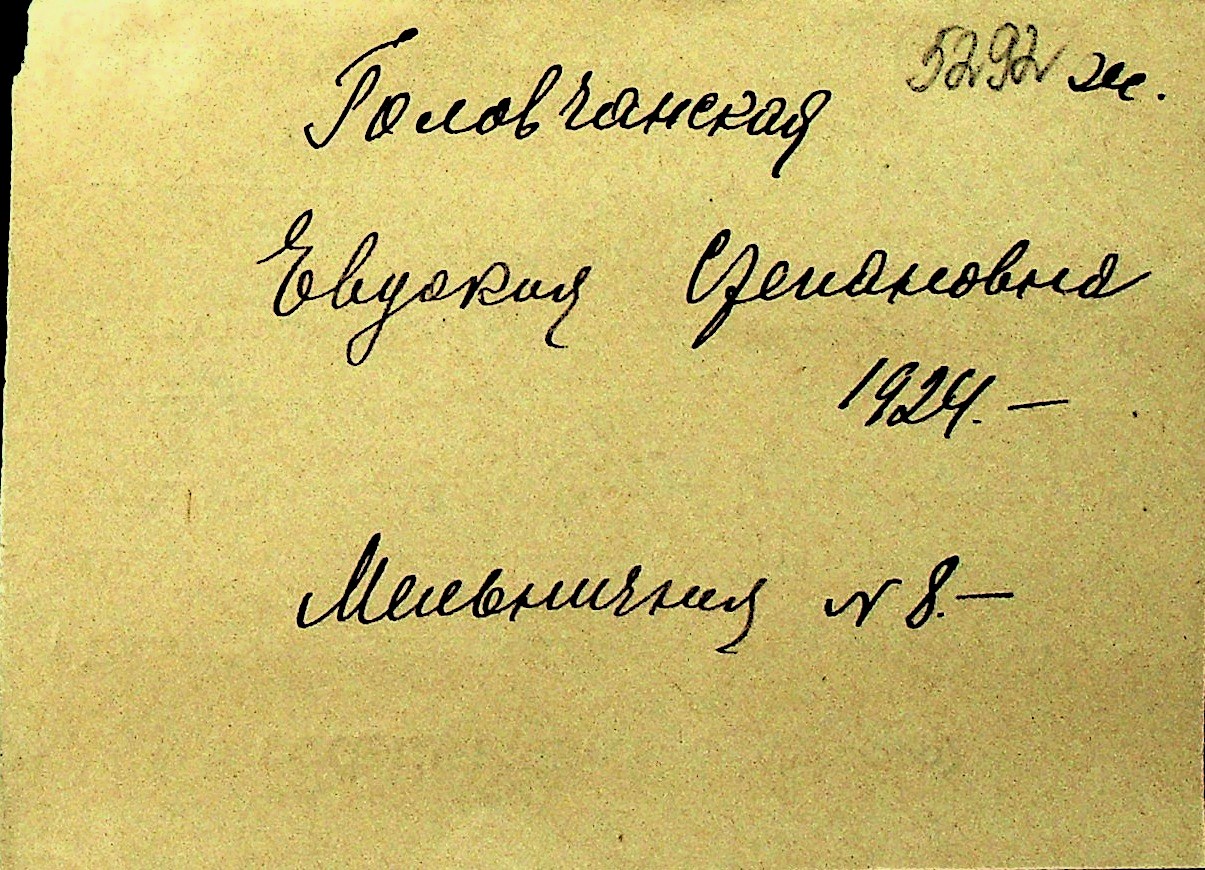 5292 ж.
Головчанская
Евдокия Степановна
1924. —
Мельничная N 8. —